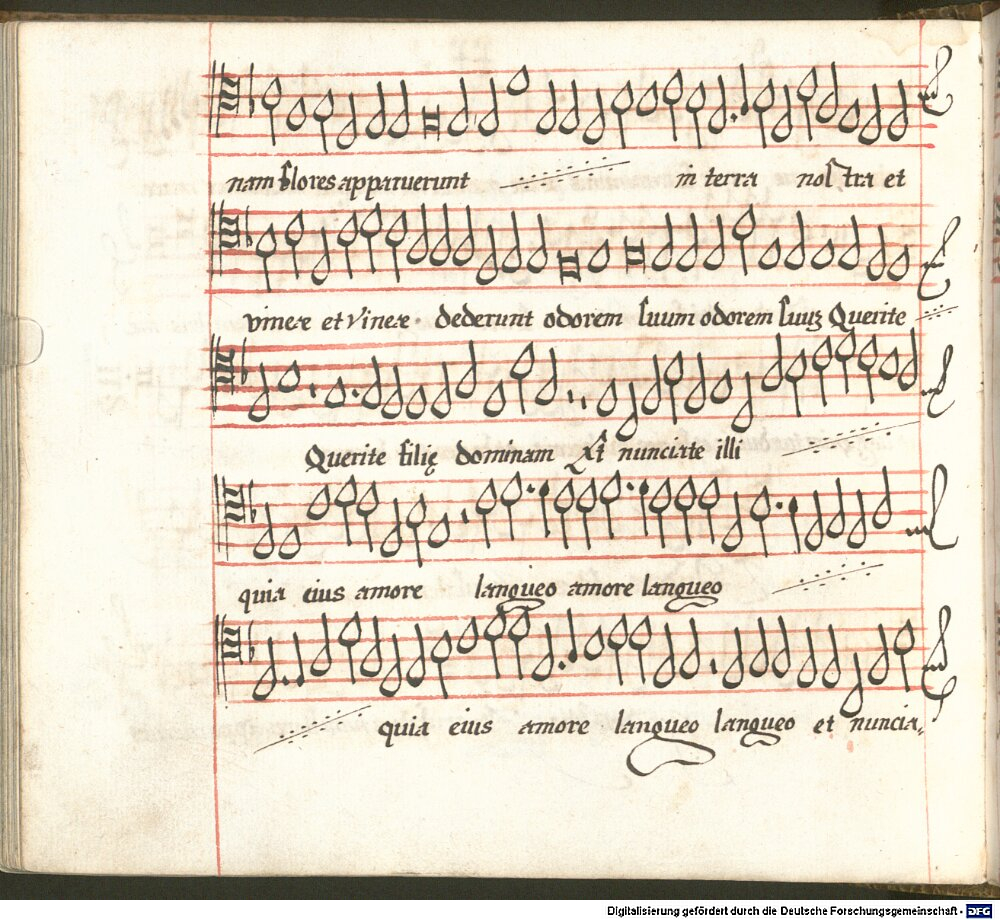 nam flores apparuerunt in terra nostra et
vineæ et vineæ. dederunt odorem suum odorem suuʒ Querite
Querite filię dominam Et nunciate illi
quia eius amore langueo amore langueo
quia eius amore langueo langueo et nuncia„
Digitalisierung gefördert durch die Deutsche Forschungsgemeinschaft - DFG